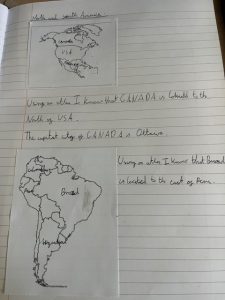 North and south America
Canada
USA
Mexico
Using an atlas I know that CANADA is located to the
North of USA.
The capital city of CANADA is Ottawa.
Using an atlas I know that Brazil
is located to the east of Peru.
Colombia
Peru
Brazil
Argentina